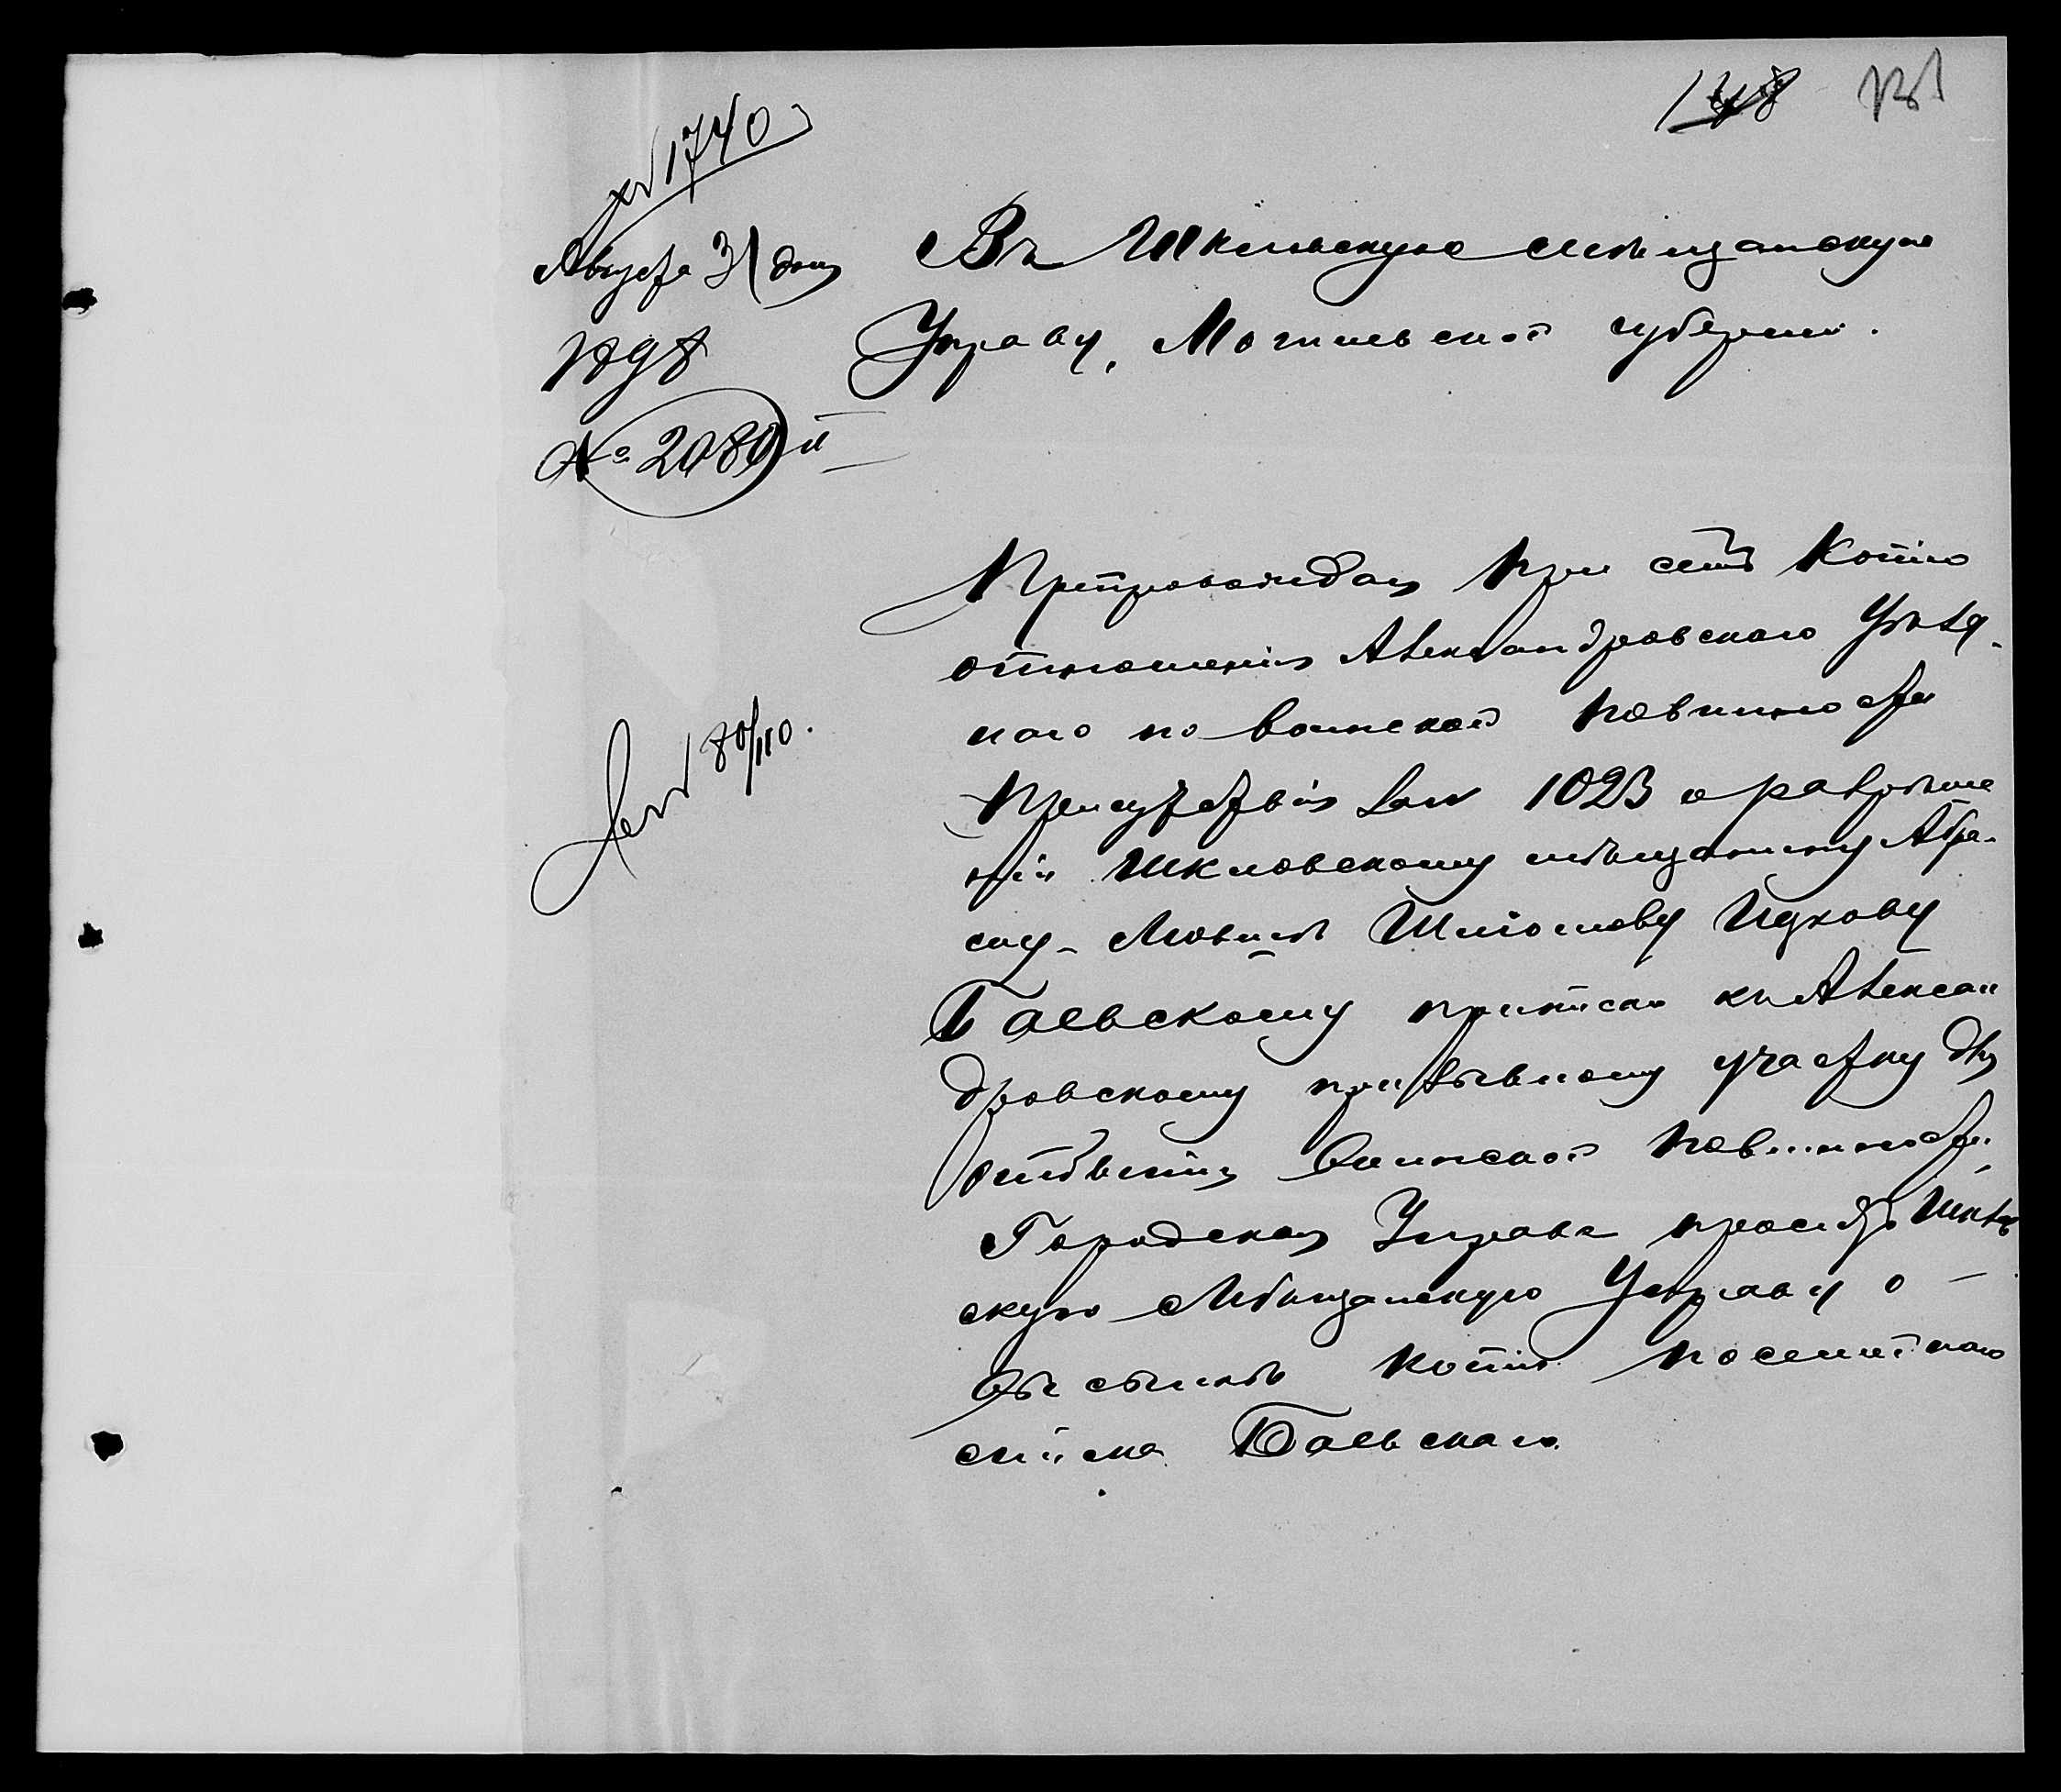 131
№ 1740
Августа 31 дня
1898
№ 2080
Въ Шкловскую Мѣщанскую
Управу, Могилевской губерніи.
Препровождая при семъ копію
отношенія Александровскаго Уѣзд-
наго по воинской повинности
Присутствія за № 1023 о разрѣше
ніи Шкловскому мѣщанину Абра-
му- Мовшѣ Шліомову Ицкову
Баевскому приписки къ Алексан
дровскому призывному участку для
отбытія воинской повинности,
Городская Управа проситъ Шклов
скую Мѣщанскую Управу о
высылкѣ копіи посемейнаго
списка Баевскаго.